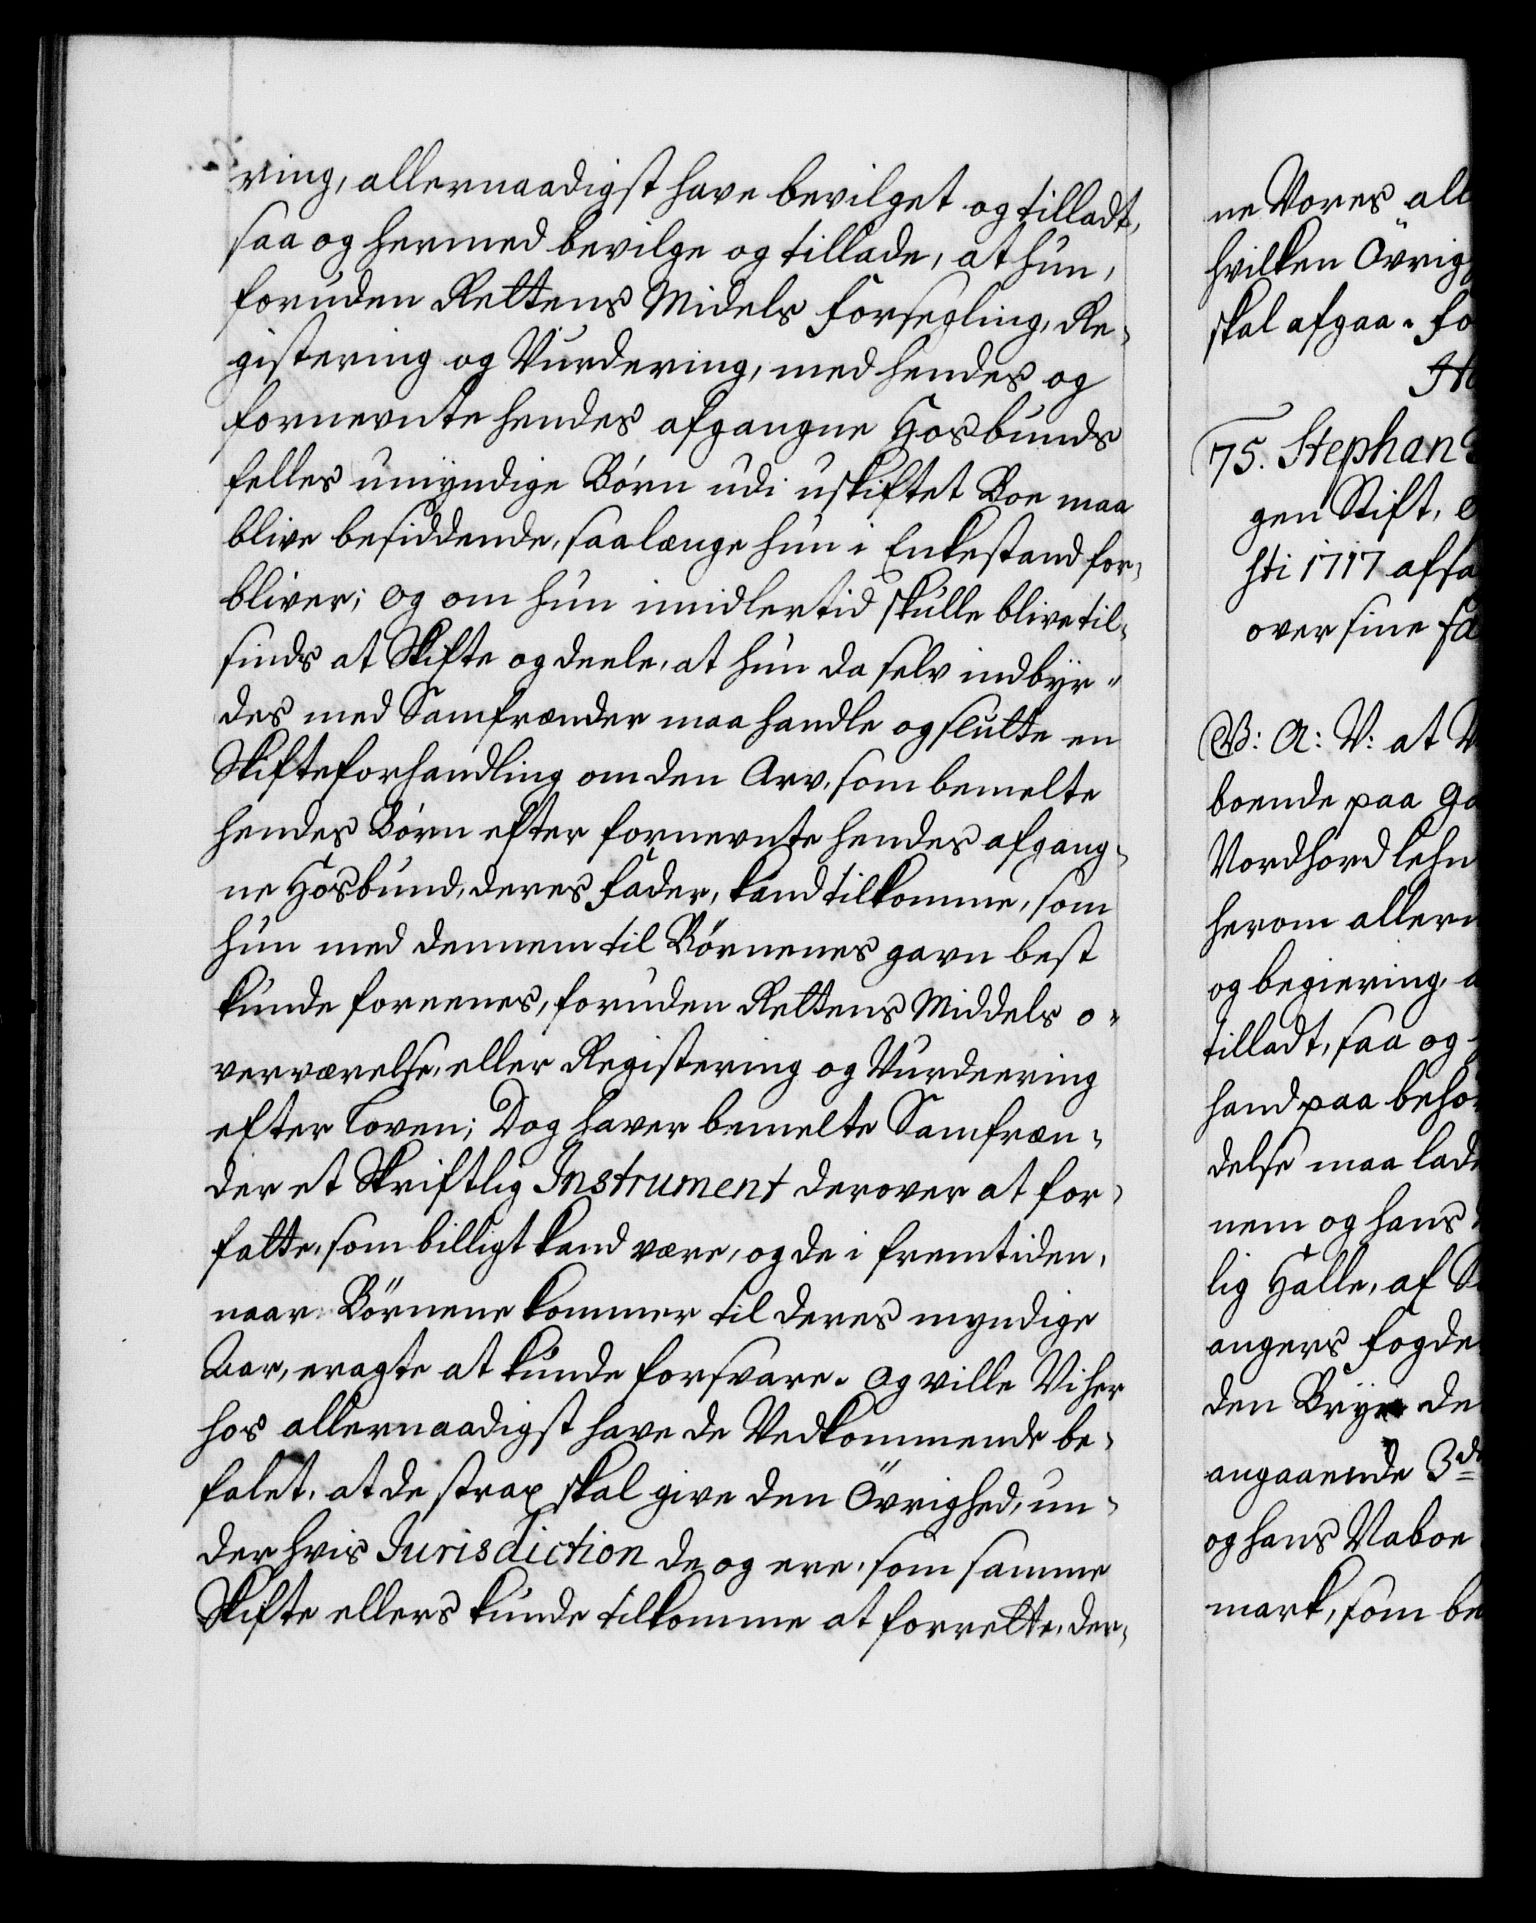 ring, allernaadigst have bevilget og tilladt,
saa og hermed bevilge og tillade, at hun,
foruden Rettens Midels Forsegling, Re-
gistering og Vurdering, med hendes og
fornevnte hendes afgangne Hosbunds
felles umyndige Børn udi uskiftet Boe maa
blive besiddende, saalænge hun i Enkestand for-
bliver; og om hun imidlertid skulle blive til-
sinds at Skifte og deele, at hun da selv indbyr-
des med Samfrænder maa handle og slutte en
Skifteforhandling om den Arv, som bemelte
hendes Børn efter fornevnte hendes afgang-
ne Hosbund, deres Fader, kand tilkomme, som
hun med dennem til Børnenes gavn best
kunde foreenes, foruden Rettens Middels o-
verværelse, eller Registering og Vurdeering
efter Loven; Dog haver bemelte Samfræn-
der et Skriftlig Instrument derover at for-
fatte, som billigt kand være, og de i fremtiden,
naar Børnene kommer til deres myndige
Aar, eragte at kunde forsvare. og ville Vi her
hos allernaadigst have de Vedkommende be-
falet, at de strax skal give den Övrighed, un-
der hvis Jurisdiction de og ere, som samme
Skifte ellers kunde tilkomme at forrette, der-
ne Vores all
hvilken Övrig
skal afgaa. Fo
75. Stephan
gen Stift,
sti 1717 affa
over sine Fa
V: A: V: at V
boende paa Ga
Nordhordlehn
herom allern
og begiering, a
tilladt, saa og
hand paa behö
delse maa lade
nem og hans
lig Halle, af S
angers Fogde
den Bryn de
angaaende 3de
og hans Naboe
mark, som be